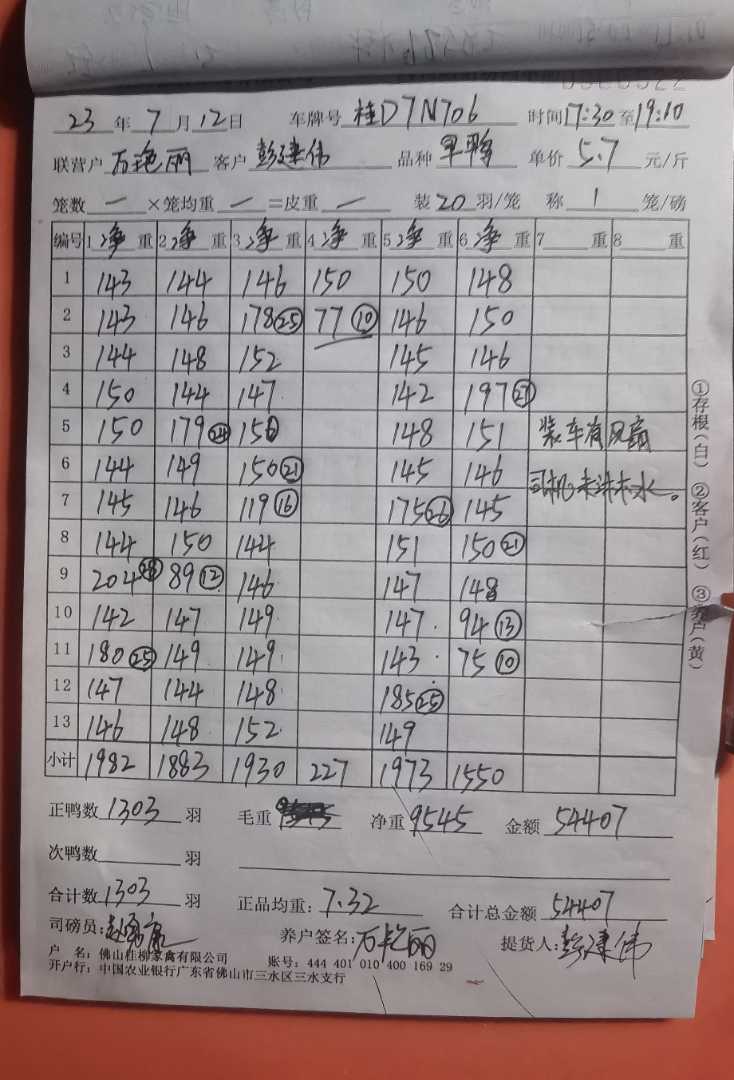 23 年 7 月 12 日 车牌号 桂D7N706 时间 17:30 至 19:10
联营户 万艳丽 客户 彭建伟 品种 单价 5.7 元/斤
笼数 一 ×笼均重 一 =皮重 一 装 20 羽/笼 称 1 笼/磅
编号 1 净 重 2 净 重 3 净 重 4 净 重 5 净 重 6 净 重 7 重 8 重
1 143 144 146 150 150 148
2 143 146 178 ㉕ 77 ⑩ 146 150
3 144 148 152 145 146
4 150 144 147 142 197 ㉗
5 150 179 ㉔ 150 148 151 装车有风扇
6 144 149 150 ㉑ 145 146 司机未淋水。
7 145 146 119 ⑯ 175 ㉖ 145
8 144 150 144 151 150 ㉑
9 204 ㉘ 89 ⑫ 146 147 148
10 142 147 149 147 94 ⑬
11 180 ㉕ 149 149 143 75 ⑩
12 147 144 148 185 ㉕
13 146 148 152 149
小计 1982 1883 1930 227 1973 1550
①存根(白) ②客户(红) ③养户(黄)
正鸭数 1303 羽 毛重 净重 9545 金额 54407
次鸭数 羽
合计数 1303 羽 正品均重: 7.32 合计总金额 54407
司磅员: 养户签名: 万艳丽 提货人: 彭建伟
户 名: 佛山桂柳家禽有限公司 账号: 444 401 010 400 169 29
开户行: 中国农业银行广东省佛山市三水区三水支行